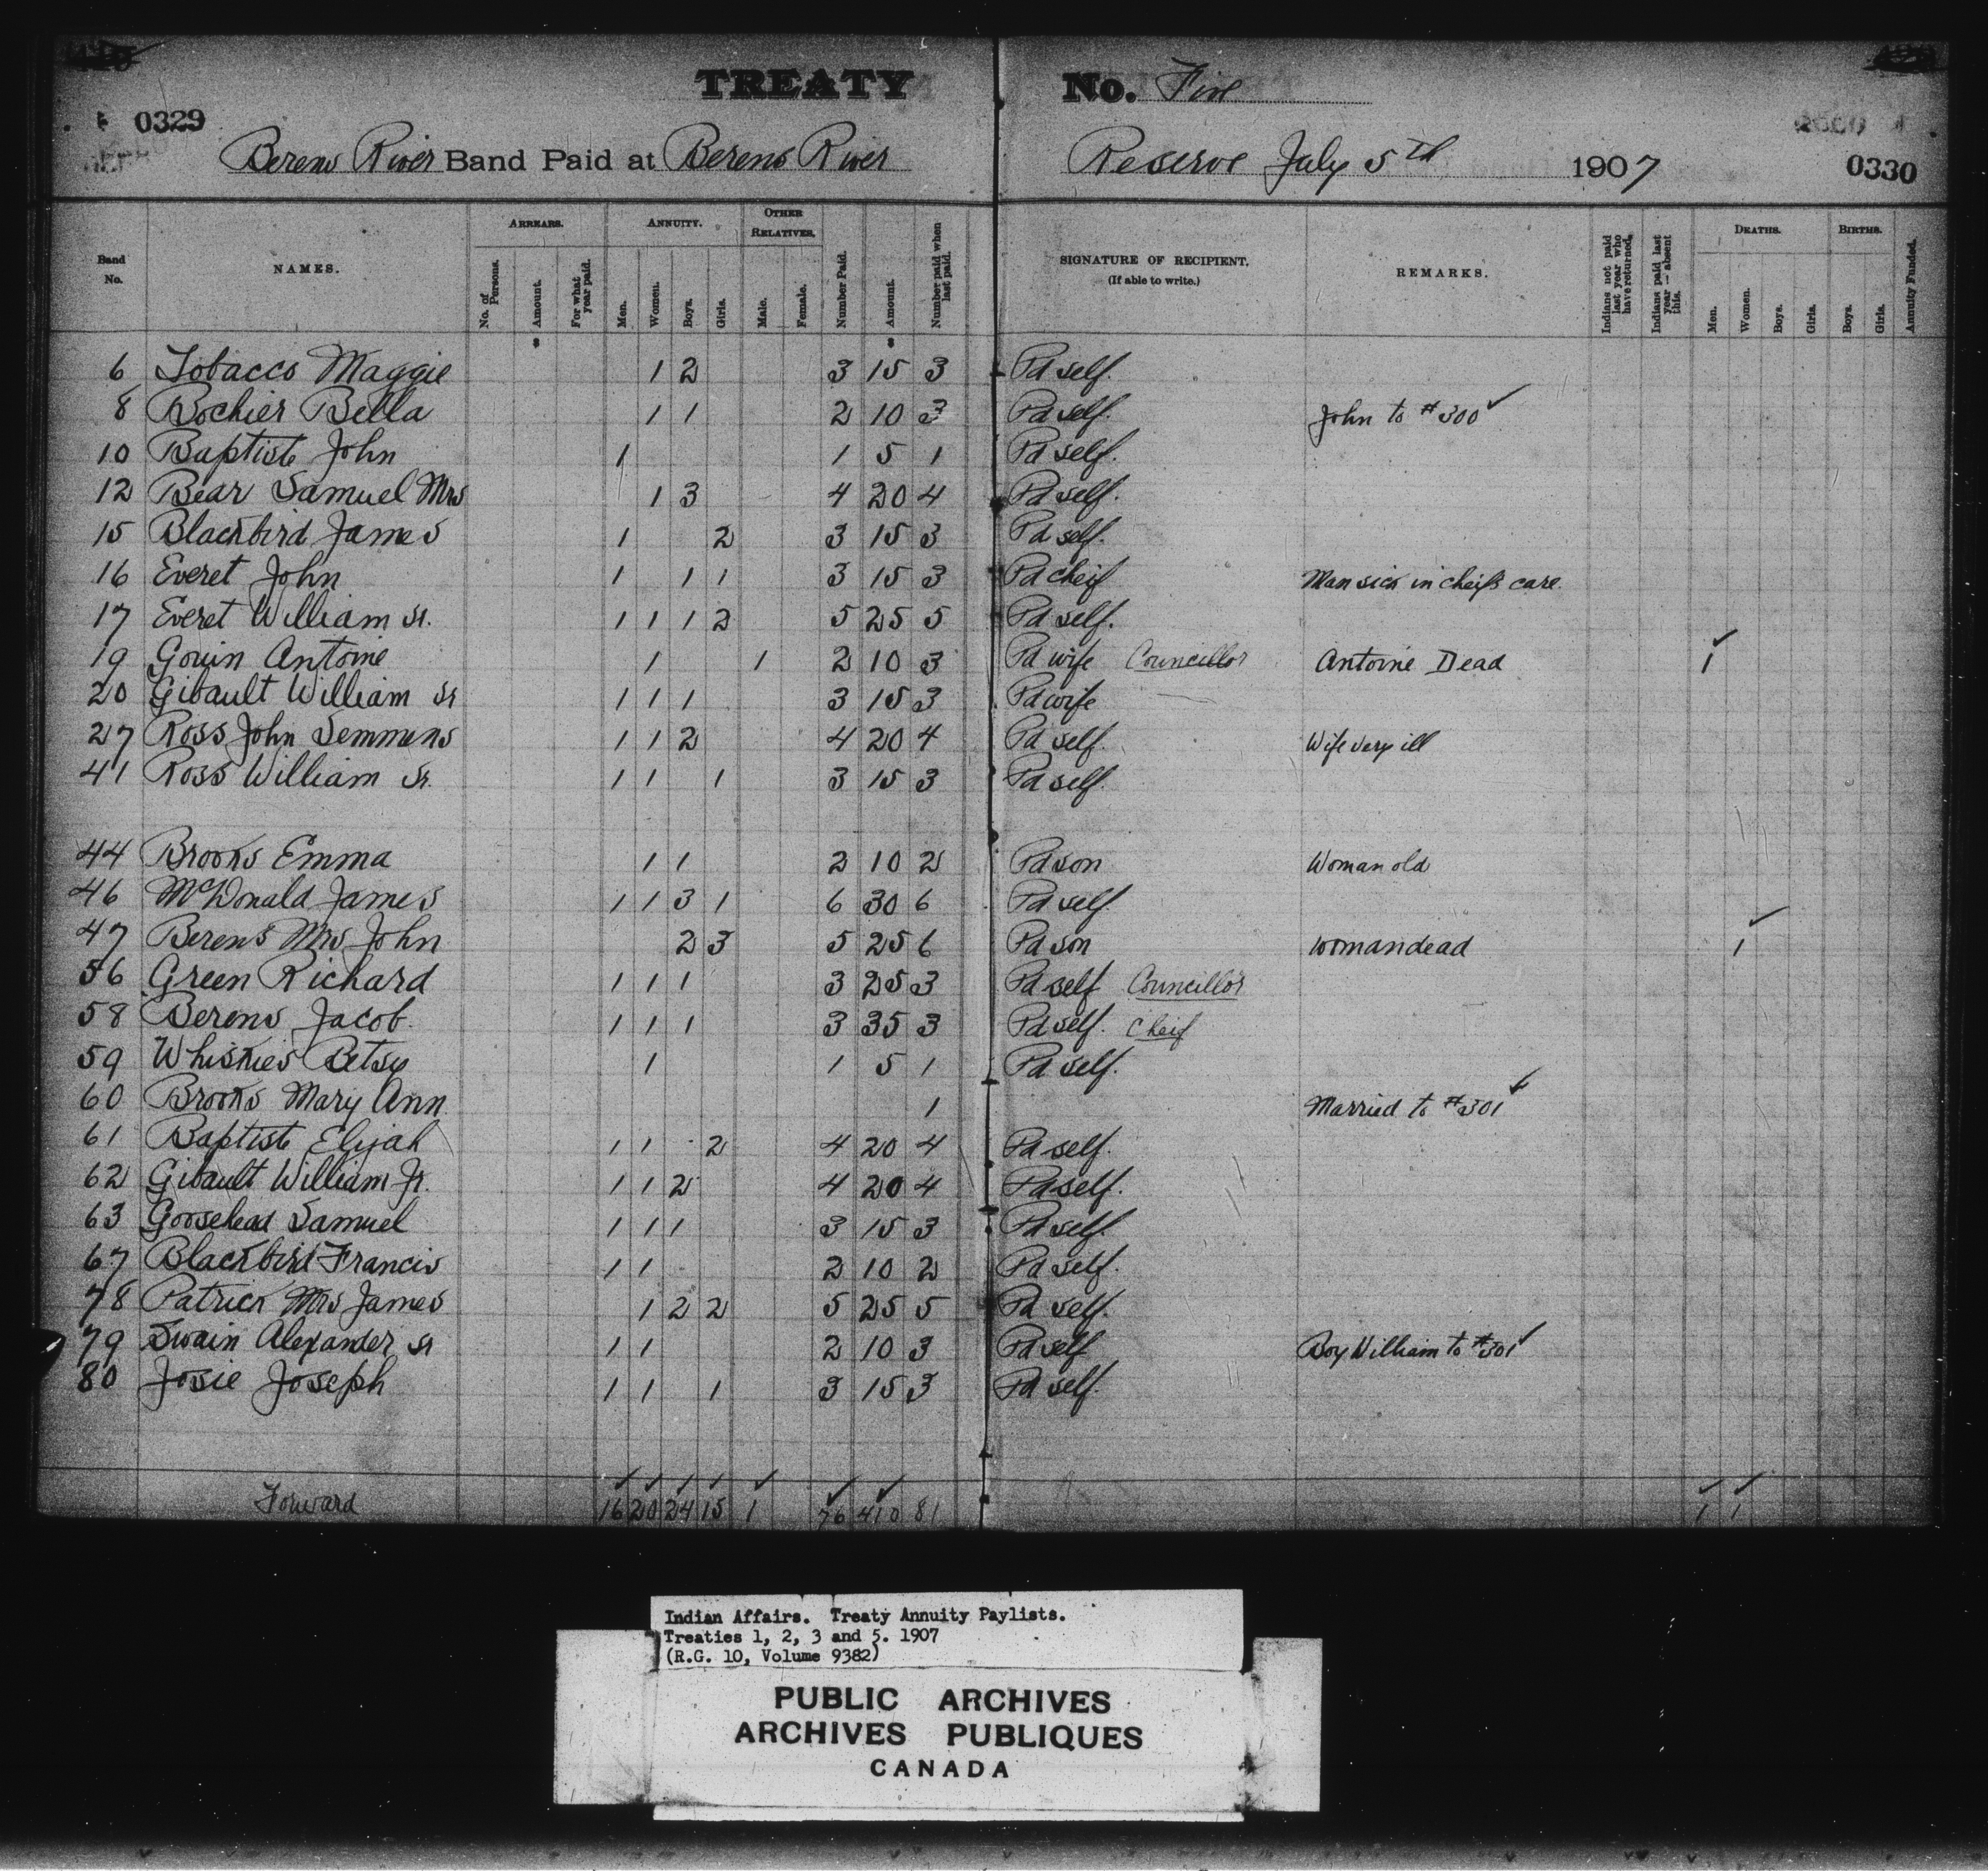 TREATY No. Five
0329
Berens River Band Paid at Berens River Reserve July 5th 1907
0330
Band No. NAMES. ARREARS. No. of Persons. Amount. For what year paid. ANNUITY. Men. Women. Boys. Girls. OTHER RELATIVES. Male. Female. Number Paid. Amount. Number paid when last paid. SIGNATURE OF RECIPIENT. (If able to write.) REMARKS. Indians not paid last year who have returned. Indians paid last year — absent this. DEATHS. Men. Women. Boys. Girls. BIRTHS. Boys. Girls. Annuity Funded.
6 Tobacco Maggie 1 2 3 15 3 Pd self.
8 Bochier Bella 1 1 2 10 3 Pd self. John to #300 ✓
10 Baptiste John 1 1 5 1 Pd self.
12 Bear Samuel Mrs 1 3 4 20 4 Pd self.
15 Blackbird James 1 2 3 15 3 Pd self.
16 Everet John 1 1 1 3 15 3 Pd cheif Man sick in cheifs care.
17 Everet William Sr. 1 1 1 2 5 25 5 Pd self.
19 Gouin Antoine 1 1 2 10 3 Pd wife Councillor Antoine Dead 1 ✓
20 Gibault William Sr 1 1 1 3 15 3 Pd wife
27 Ross John Semmens 1 1 2 4 20 4 Pd self. Wife very ill
41 Ross William Sr. 1 1 1 3 15 3 Pd self.
44 Brooks Emma 1 1 2 10 2 Pd son Woman old
46 McDonald James 1 1 3 1 6 30 6 Pd self
47 Berens Mrs John 2 3 5 25 6 Pd son woman dead 1 ✓
56 Green Richard 1 1 1 3 25 3 Pd self Councillor
58 Berens Jacob. 1 1 1 3 35 3 Pd self. Cheif
59 Whiskies Betsy 1 1 5 1 Pd self.
60 Brooks Mary Ann 1 Married to #301 ✓
61 Baptiste Elijah 1 1 2 4 20 4 Pd self.
62 Gibault William Jr. 1 1 2 4 20 4 Pd self.
63 Goosehead Samuel 1 1 1 3 15 3 Pd self.
67 Blackbird Francis 1 1 2 10 2 Pd self.
78 Patrick Mrs James 1 2 2 5 25 5 Pd self.
79 Swain Alexander Sr 1 1 2 10 3 Pd self Boy William to #301 ✓
80 Josie Joseph 1 1 1 3 15 3 Pd self.
Forward 16 20 24 15 1 76 410 81 1 1
Indian Affairs. Treaty Annuity Paylists.
Treaties 1, 2, 3 and 5. 1907
(R.G. 10, Volume 9382)
PUBLIC ARCHIVES
ARCHIVES PUBLIQUES
CANADA